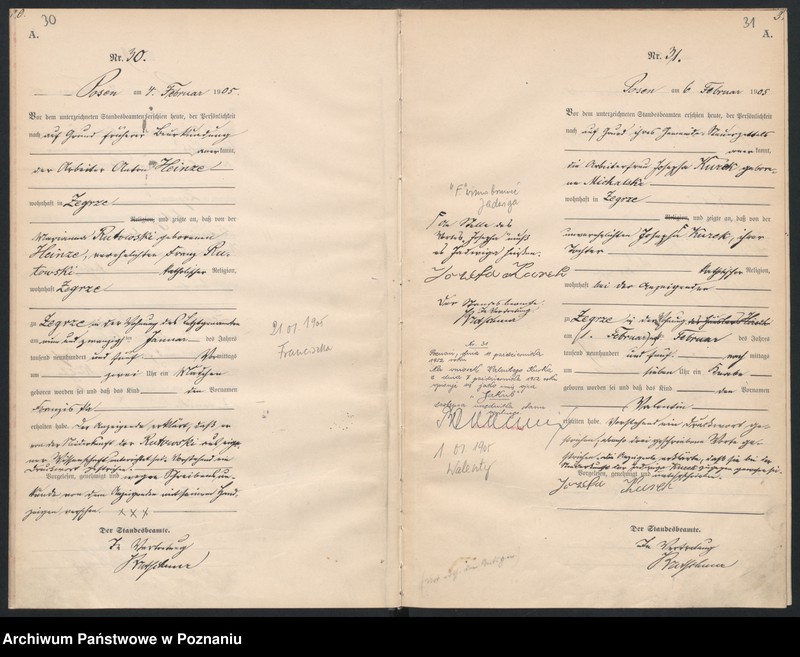 30
A.
Nr. 30.
Posen am 4. Februar 1905.
Vor dem unterzeichneten Standesbeamten erschien heute, der Persönlichkeit
nach auf Grund früherer Beurkundung
kannt,
der Arbeiter Anton Heinze
wohnhaft in Zegrze
Religion, und zeigte an, daß von der
Marianna Rutowski geborenen
Heinze, verehelichte Franz Ru-
towski
katholischer Religion,
wohnhaft Zegrze
zu Zegrze in der Wohnung des
am ein und zwanzigsten Januar des Jahres
tausend neunhundert und fünf Vormittags
um zwei Uhr ein Mädchen
geboren worden sei und daß das Kind den Vornamen
Franziska
erhalten habe. Der Anzeigende erklärt, daß er
von der Niederkunft der Rutowski aus eige-
ner Wissenschaft unterrichtet sei. Vorstehend ein
Druckwort gestrichen.
Vorgelesen, genehmigt und wegen Schreibensun-
kunde von dem Anzeigenden mit seinem Hand-
zeichen versehen. XXX
Der Standesbeamte.
In Vertretung
21.01 1905
Franciszka
31
A.
Nr. 31.
Posen am 6. Februar 1905
Vor dem unterzeichneten Standesbeamten erschien heute, der Persönlichkeit
nach auf Grund ihres Gemeinde-Steuerzettels
kannt,
die Arbeiterfrau Josepha Kurek gebore-
ne Michalska
wohnhaft in Zegrze
Religion, und zeigte an, daß von der
unverehelichten Josepha Kurek, ihrer
Tochter
katholischer Religion,
wohnhaft bei der Anzeigenden
zu Zegrze in der Wohnung
am 1. Februar des Jahres
tausend neunhundert und fünf nachmittags
um sieben Uhr ein Knabe
geboren worden sei und daß das Kind den Vornamen
Valentin
erhalten habe. Vorstehend ein Druckwort ge-
strichen,
gestrichen. Die Anzeigende erklärte, daß sie bei der
Niederkunft der Hedwig Kurek zugegen gewesen sei.
Vorgelesen, genehmigt und unterschrieben.
Józefa Kurek
Der Standesbeamte.
In Vertretung
Jadwiga
An Stelle des
Wortes "Josepha" muß
es Hedwiga heißen.
Józefa Kurek
Der Standesbeamte
In Vertretung
No. 31
Poznań, dnia 11 października
1952 roku
Na wniosek Walentego Kurka
z dnia 7 października 1952 roku
wpisuje się jako imię ojca
"Jakub"
1.02 1905
Walenty
Archiwum Państwowe w Poznaniu